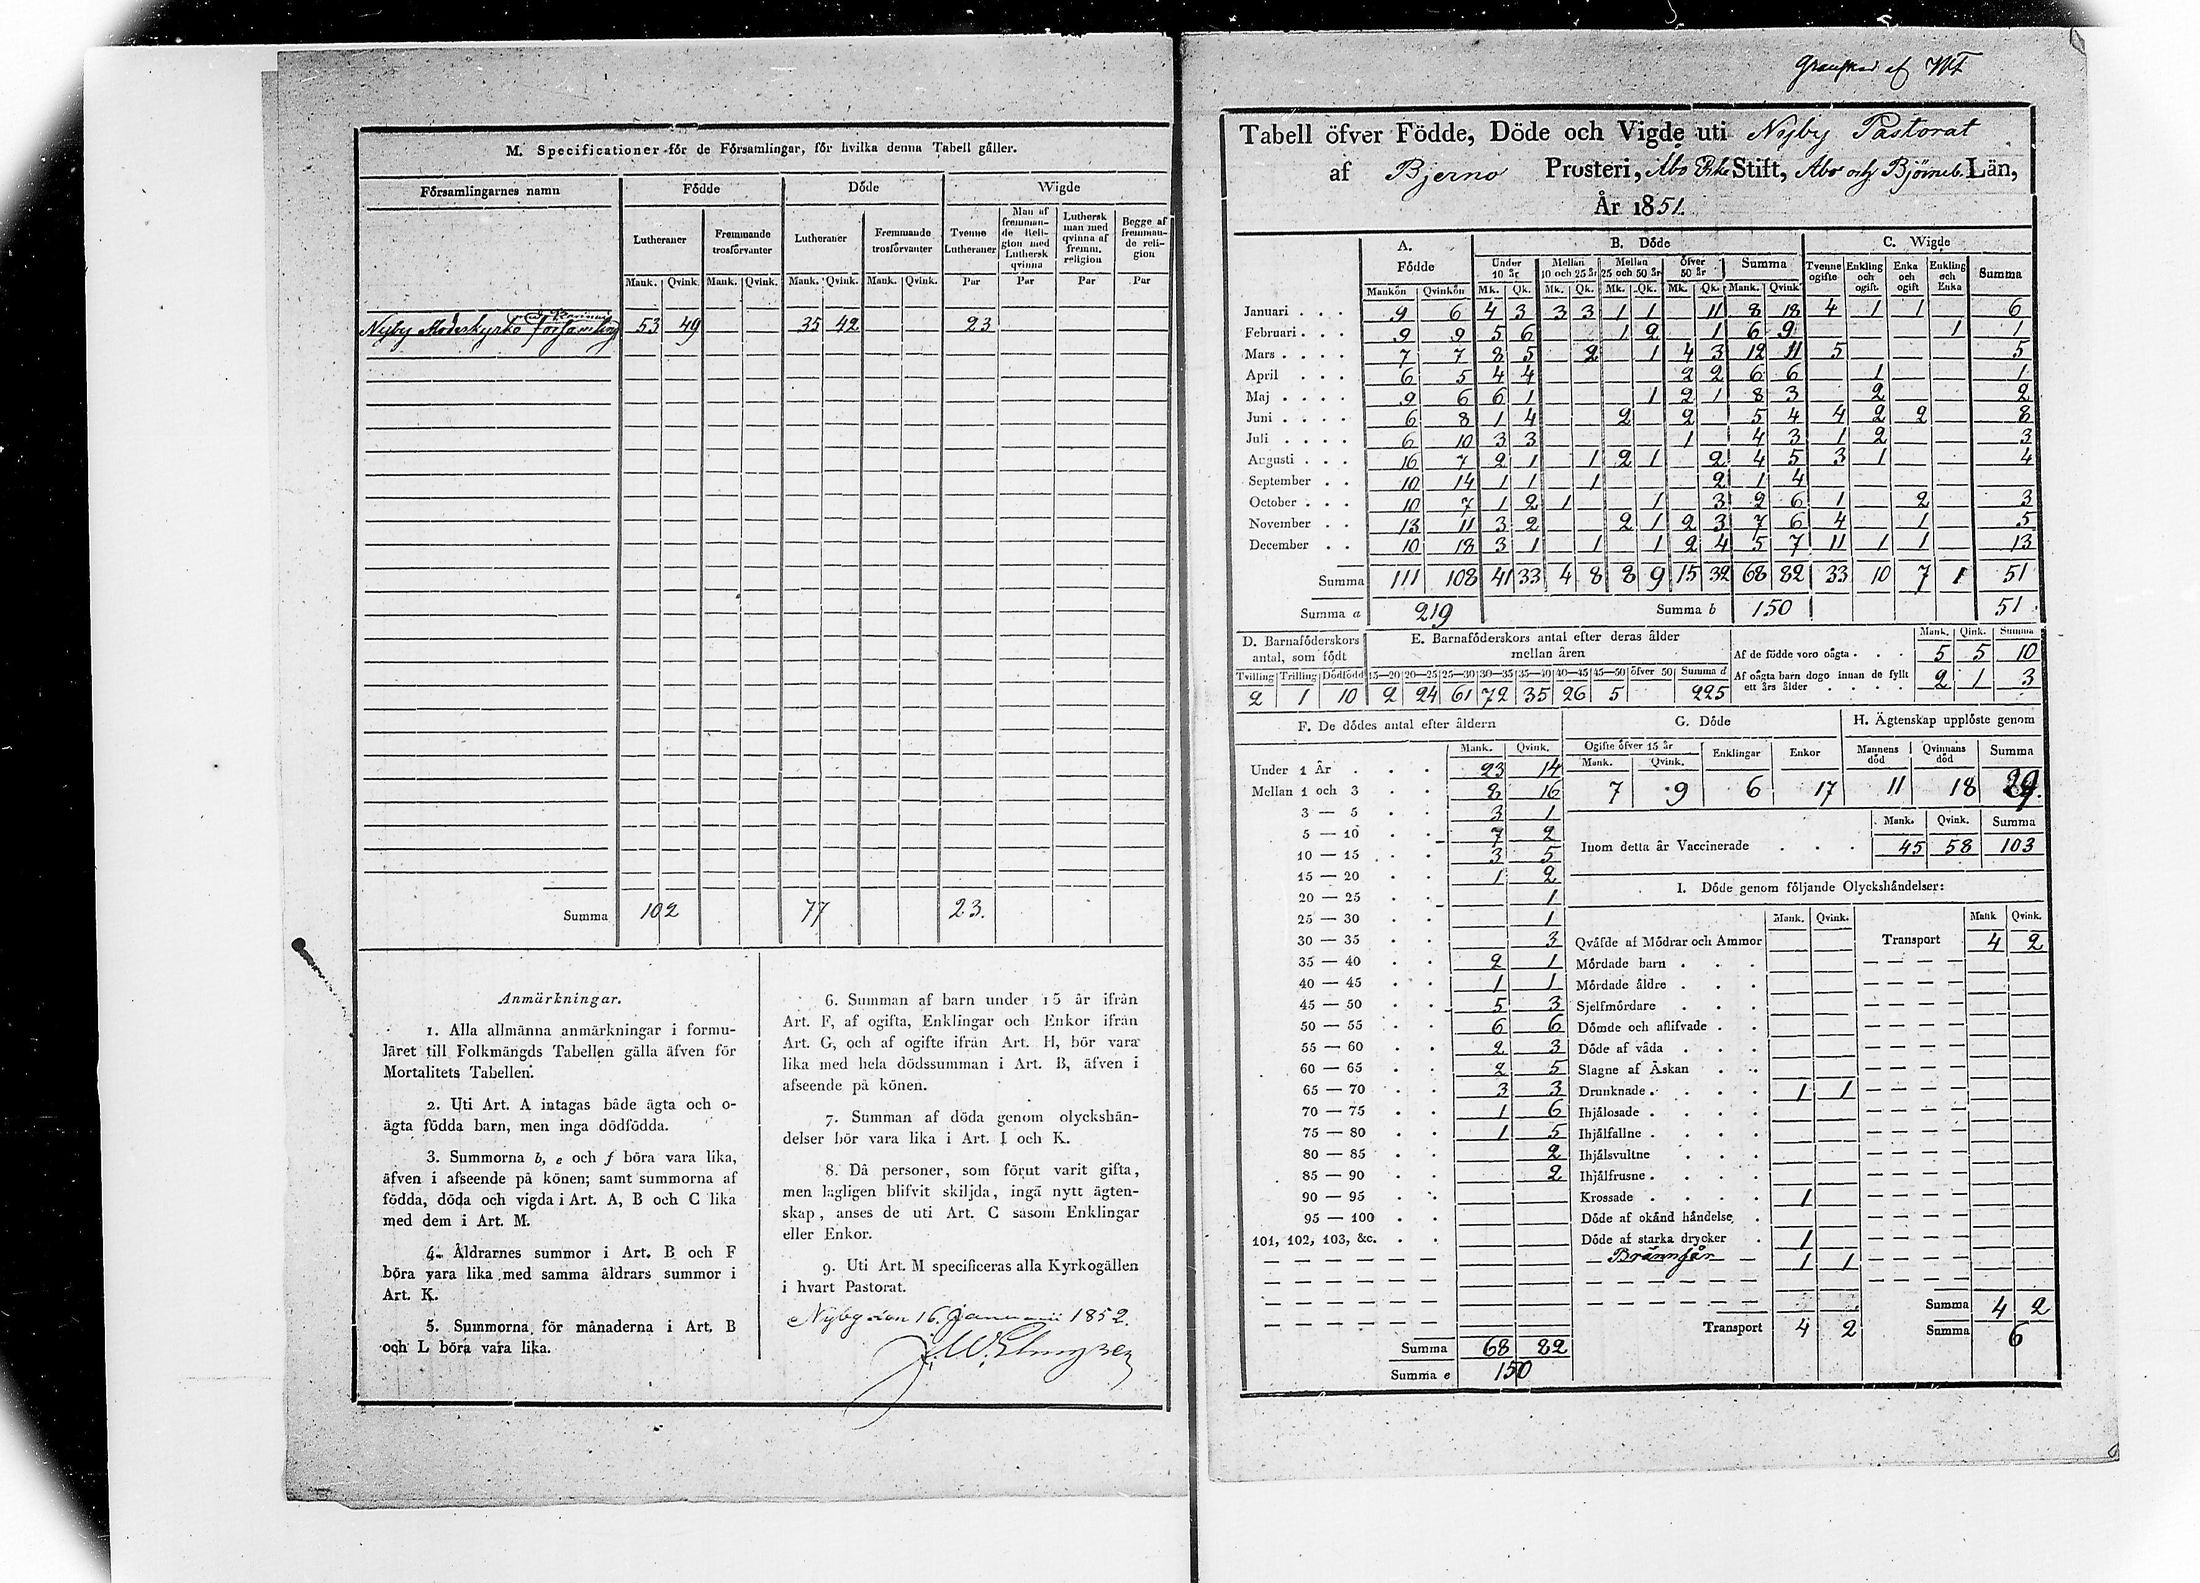 M. Specificationer för de Församlingar, för hvilka denna Tabell gäller.
Församlingarnes namn Födde Döde Wigde
Lutheraner Fremmande trosförvanter Lutheraner Fremmande trosförvanter Tvenne Lutheraner Man af fremmande Religion med Luthersk qvinna Luthersk man med qvinna af fremm. religion Begge af fremmande religion
Mank. Qvink. Mank. Qvink. Mank. Qvink. Mank. Qvink. Par Par Par Par
Nyby Moderkyrko församling 53 49 35 42 23
Summa 102 77 23.
Anmärkningar.
1. Alla allmänna anmärkningar i formu-
läret till Folkmängds Tabellen gälla äfven för
Mortalitets Tabellen.
2. Uti Art. A intagas både ägta och o-
ägta födda barn, men inga dödfödda.
3. Summorna b, e och f böra vara lika,
äfven i afseende på könen; samt summorna af
födda, döda och vigda i Art. A, B och C lika
med dem i Art. M.
4. Åldrarnes summor i Art. B och F
böra vara lika med samma åldrars summor i
Art. K.
5. Summorna för månaderna i Art. B
och L böra vara lika.
6. Summan af barn under 15 år ifrån
Art. F, af ogifta, Enklingar och Enkor ifrån
Art. G, och af ogifte ifrån Art. H, bör vara
lika med hela dödssumman i Art. B, äfven i
afseende på könen.
7. Summan af döda genom olyckshän-
delser bör vara lika i Art. I och K.
8. Då personer, som förut varit gifta,
men lagligen blifvit skiljda, ingå nytt ägten-
skap, anses de uti Art. C såsom Enklingar
eller Enkor.
9. Uti Art. M specificeras alla Kyrkogällen
i hvart Pastorat.
Nyby den 16. Januarii 1852.
Tabell öfver Födde, Döde och Vigde uti Nyby Pastorat
af Bjerno Prosteri, Åbo Erke Stift, Åbo och Björneb. Län,
År 1851.
A. Födde B. Döde C. Wigde
Under 10 år Mellan 10 och 25 år Mellan 25 och 50 år Öfver 50 år Summa Tvenne ogifte Enkling och ogift. Enka och ogift Enkling och Enka Summa
Mankön Qvinkön Mk. Qk. Mk. Qk. Mk. Qk. Mk. Qk. Mank. Qvink
Januari 9 6 4 3 3 3 1 1 11 8 18 4 1 1 6
Februari 9 9 5 6 1 2 1 6 9 1 1
Mars 7 7 8 5 2 1 4 3 12 11 5 5
April 6 5 4 4 2 2 6 6 1 1
Maj 9 6 6 1 1 2 1 8 3 2 2
Juni 6 8 1 4 2 2 5 4 4 2 2 8
Juli 6 10 3 3 1 4 3 1 2 3
Augusti 16 7 2 1 1 2 1 2 4 5 3 1 4
September 10 14 1 1 1 2 1 4
October 10 7 1 2 1 1 3 2 6 1 2 3
November 13 11 3 2 2 1 2 3 7 6 4 1 5
December 10 18 3 1 1 1 2 4 5 7 11 1 1 13
Summa 111 108 41 33 4 8 8 9 15 32 68 82 33 10 7 1 51
Summa a 219 Summa b 150 51.
D. Barnaföderskors antal, som födt E. Barnaföderskors antal efter deras ålder mellan åren
Mank. Qink. Summa
Af de födde voro oägta 5 5 10
Tvilling Trilling Dödfödd 15—20 20—25 25—30 30—35 35—40 40—45 45—50 öfver 50 Summa d
2 1 10 2 24 61 72 35 26 5 225
Af oägta barn dogo innan de fyllt ett års ålder 2 1 3
F. De dödes antal efter åldern
Mank. Qvink.
Under 1 År 23 14
Mellan 1 och 3 8 16
3 — 5 3 1
5 — 10 7 2
10 — 15 3 5
15 — 20 1 2
20 — 25 1
25 — 30 1
30 — 35 3
35 — 40 2 1
40 — 45 1 1
45 — 50 5 3
50 — 55 6 6
55 — 60 2 3
60 — 65 2 5
65 — 70 3 3
70 — 75 1 6
75 — 80 1 5
80 — 85 2
85 — 90 2
90 — 95
95 — 100
101, 102, 103, &c.
Summa 68 82
Summa e 150
G. Döde
Ogifte öfver 15 år Enklingar Enkor
Mank. Qvink.
7 9 6 17
H. Ägtenskap upplöste genom
Mannens död Qvinnans död Summa
11 18 29.
Mank. Qvink. Summa
Inom detta år Vaccinerade 45 58 103
I. Döde genom följande Olyckshändelser:
Mank. Qvink. Mank Qvink.
Qväfde af Mödrar och Ammor Transport 4 2
Mördade barn
Mördade äldre
Sjelfmördare
Dömde och aflifvade
Döde af våda
Slagne af Åskan
Drunknade 1 1
Ihjälosade
Ihjälfallne
Ihjälsvultne
Ihjälfrusne
Krossade 1
Döde af okänd händelse
Döde af starka drycker 1
Brännsår 1 1
Summa 4 2
Transport 4 2 Summa 6